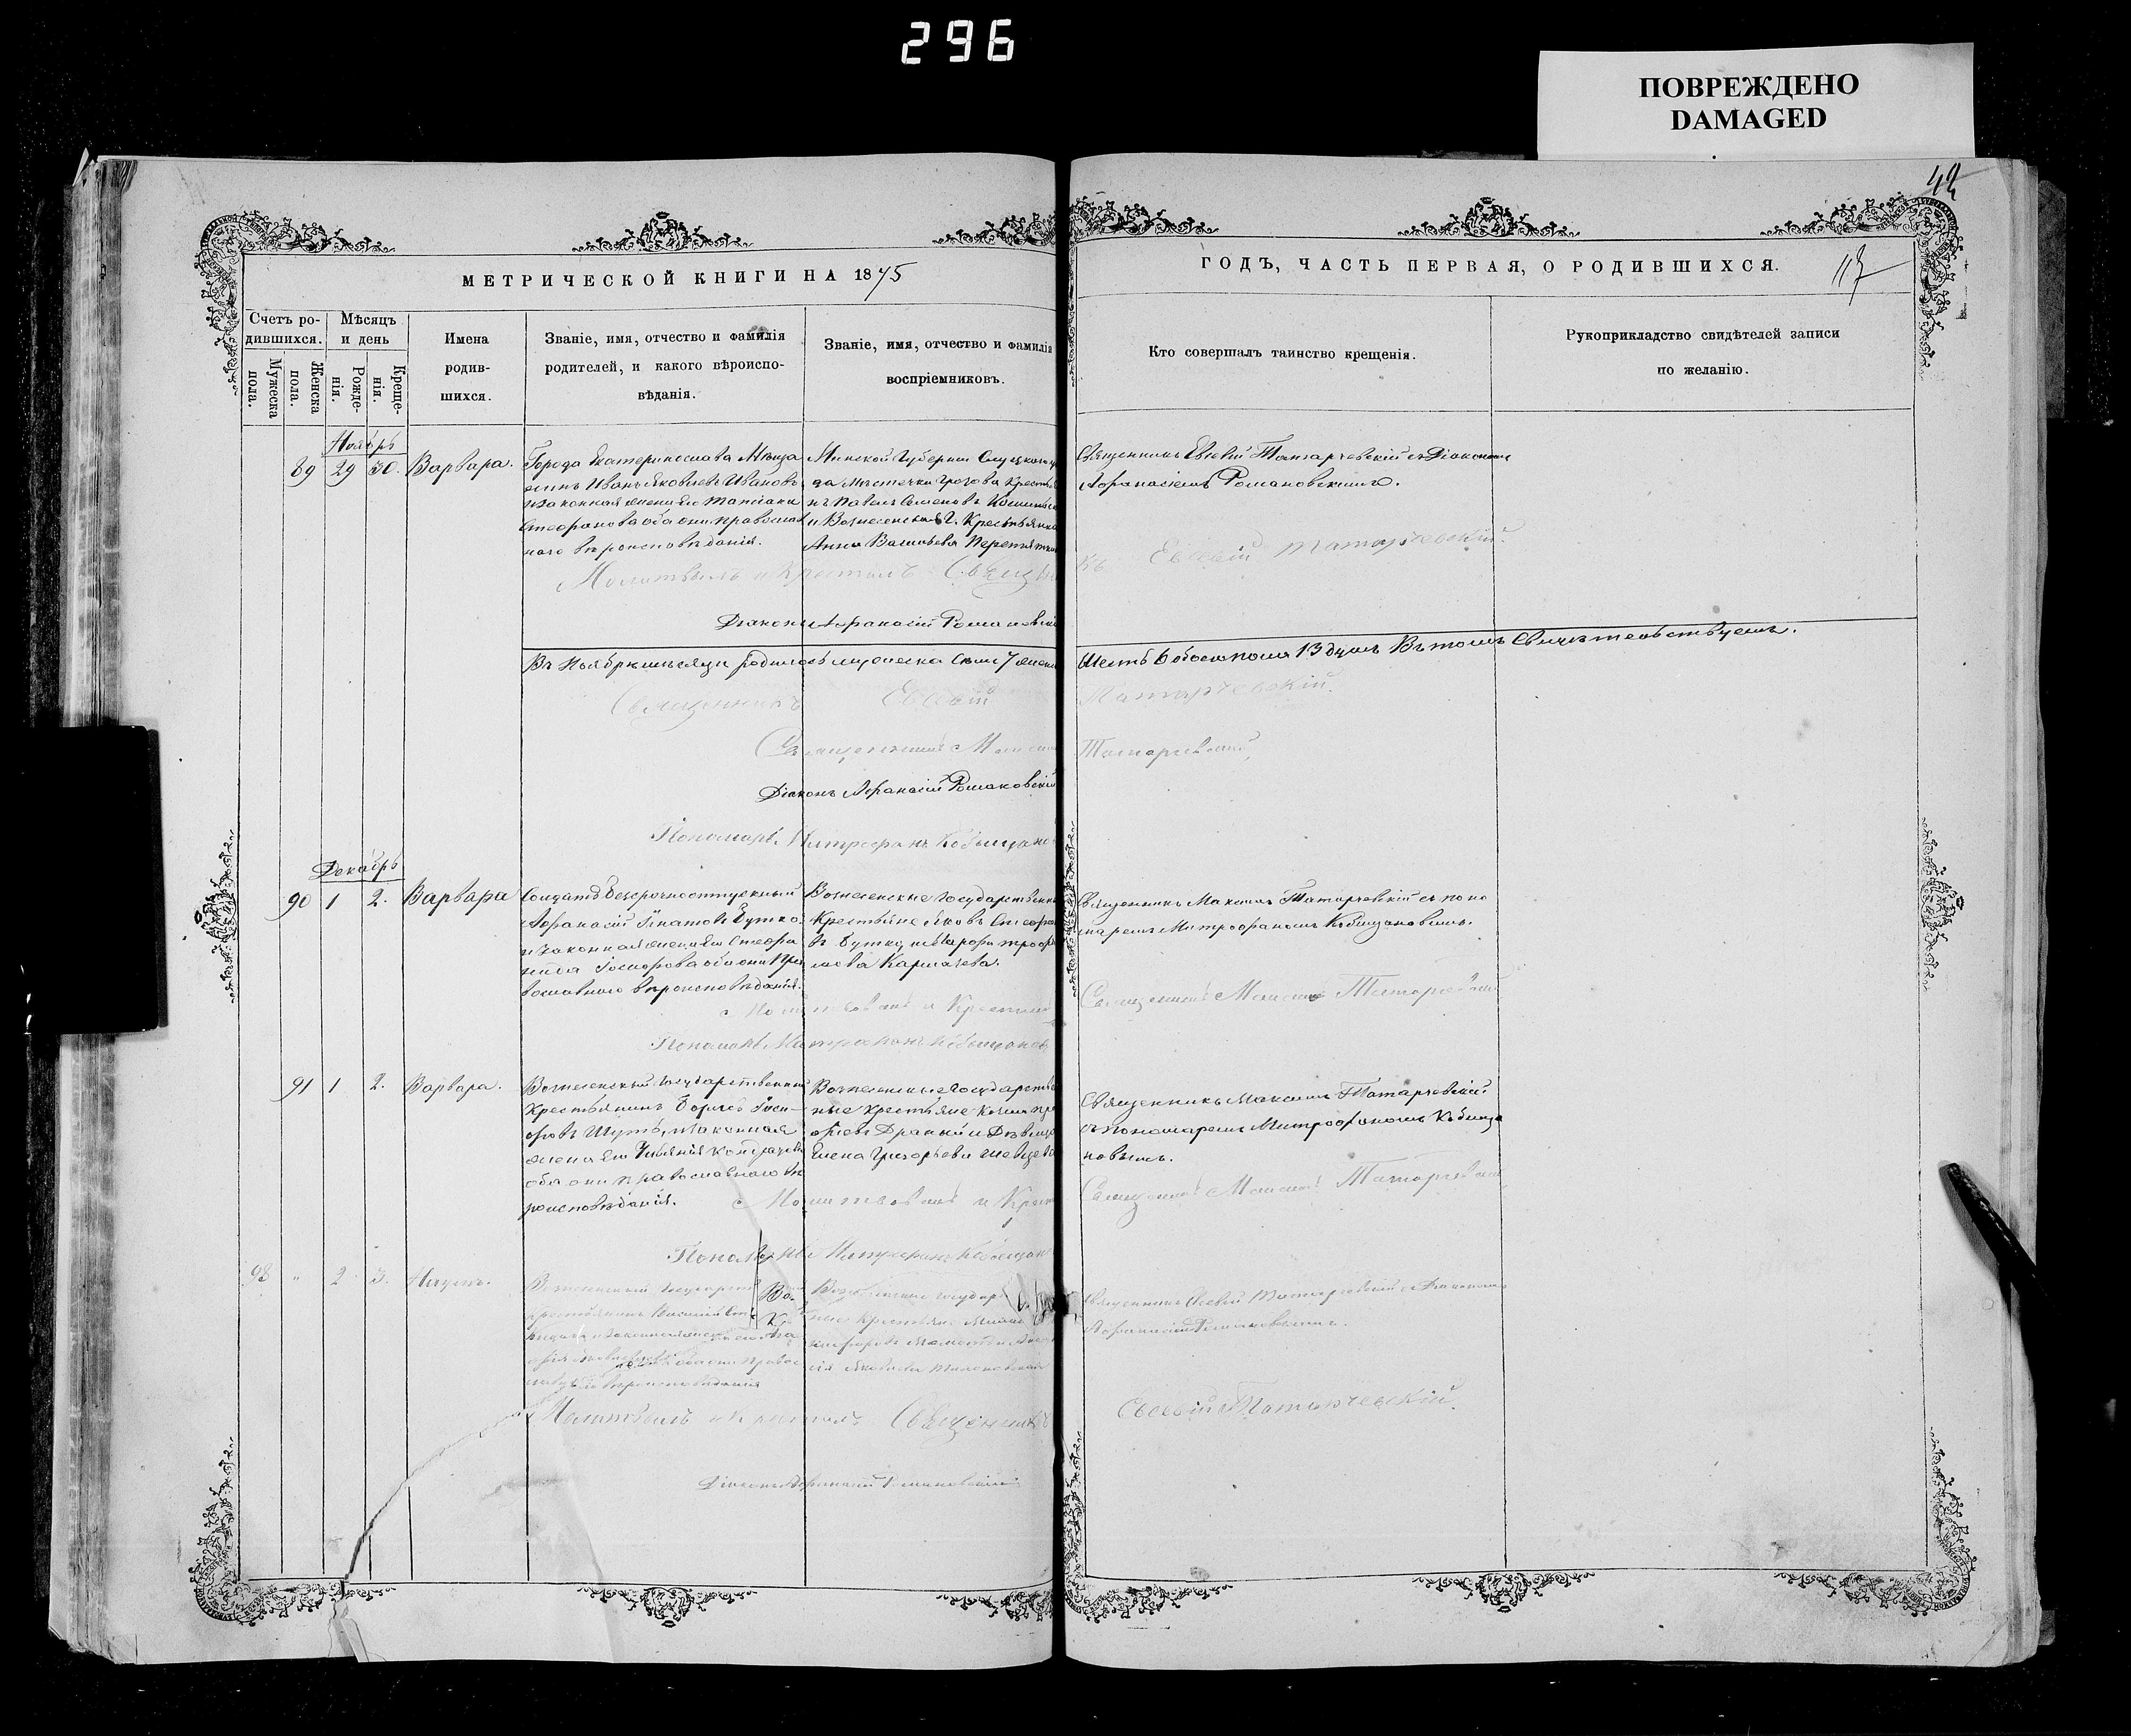 296
ПОВРЕЖДЕНО
DAMAGED
42
МЕТРИЧЕСКОЙ КНИГИ НА 1875
ГОДЪ, ЧАСТЬ ПЕРВАЯ, О РОДИВШИХСЯ.
Счетъ ро-
дившихся.
Мужеска
пола.
Женска
пола.
Мѣсяцъ
и день
Рожде-
нія.
Креще-
нія.
Имена
родив-
шихся.
Званіе, имя, отчество и фамилія
родителей, и какого вѣроиспо-
вѣданія.
Званіе, имя, отчество и фамилія
воспріемниковъ.
Кто совершалъ таинство крещенія.
Рукоприкладство свидѣтелей записи
по желанію.
Ноябрь
89 29 30. Варвара.
Города Екатеринослава Мѣща
нинъ Иванъ Яковлевъ Ивановъ
и законная жена его Татіана
Стефанова оба они православ
наго вѣроисповѣданія.
Минской Губерніи Слуцкаго у
да Мѣстечка Грозова Крестья
нъ Павелъ Семеновъ
и Вознесенская Г. Крестьянка
Анна Васильева
Священникъ Евсевій Татарчевскій съ Діакономъ
Афанасіемъ Романовскимъ.
Молитвилъ и Крестилъ Священ
къ Евсевій Татарчевскій.
Діаконъ Афанасій Романовскій
Въ Ноябрѣ мѣсяцѣ родилось мужеска семь 7 женска
шесть 6 обоего пола 13 душъ Въ томъ Свидѣтельствуемъ.
Священникъ Евсевій
Татарчевскій.
Священникъ Максимъ
Татарчевскій,
Діаконъ Афанасій Романовскій
Пономарь Митрофанъ Кобищано
Декабрь
90 1 2. Варвара
Солдатъ безсрочноотпускный
Афанасій Игнатовъ Бутко
и законная жена его Стефа
нида Іосифова оба они Пра
вославнаго вѣроисповѣданія.
Вознесенскіе Государственн
Крестьяне Яковъ Стефано
въ Бутко, и
мова Каргачева.
Священникъ Максимъ Татарчевскій съ поно
маремъ Митрофаномъ Кобищановымъ.
Молитвовалъ и Крестилъ
Священникъ Максимъ Татарчевскій
Пономарь Митрофанъ Кобищановъ
91 1 2. Варвара.
Вознесенскій Государственный
Крестьянинъ Борисъ Іоси-
фовъ Шутъ, и законная
жена его Ульянія Кондратова
оба они православнаго вѣ
роисповѣданія.
Вознесенскіе Государстве
ные крестьяне
Драный и Дѣвица
Елена Григорьева
Священникъ Максимъ Татарчевскій
съ пономаремъ Митрофаномъ Кобища
новымъ.
Молитвовалъ и Крест
Священникъ Максимъ Татарчевскій
Пономарь Митрофанъ Кобищан
98 " 2 3. Наумъ.
Вознесенскій Государств
крестьянинъ Василій
и законная жена его
оба они Правос
лавнаго вѣроисповѣданія
Вознесенскіе государ
ные крестьяне
Яковлева
Священникъ Евсевій Татарчевскій съ Діакономъ
Афанасіемъ Романовскимъ.
Молитвилъ и Крестилъ Священникъ
Евсевій Татарчевскій.
Діаконъ Афанасій Романовскій